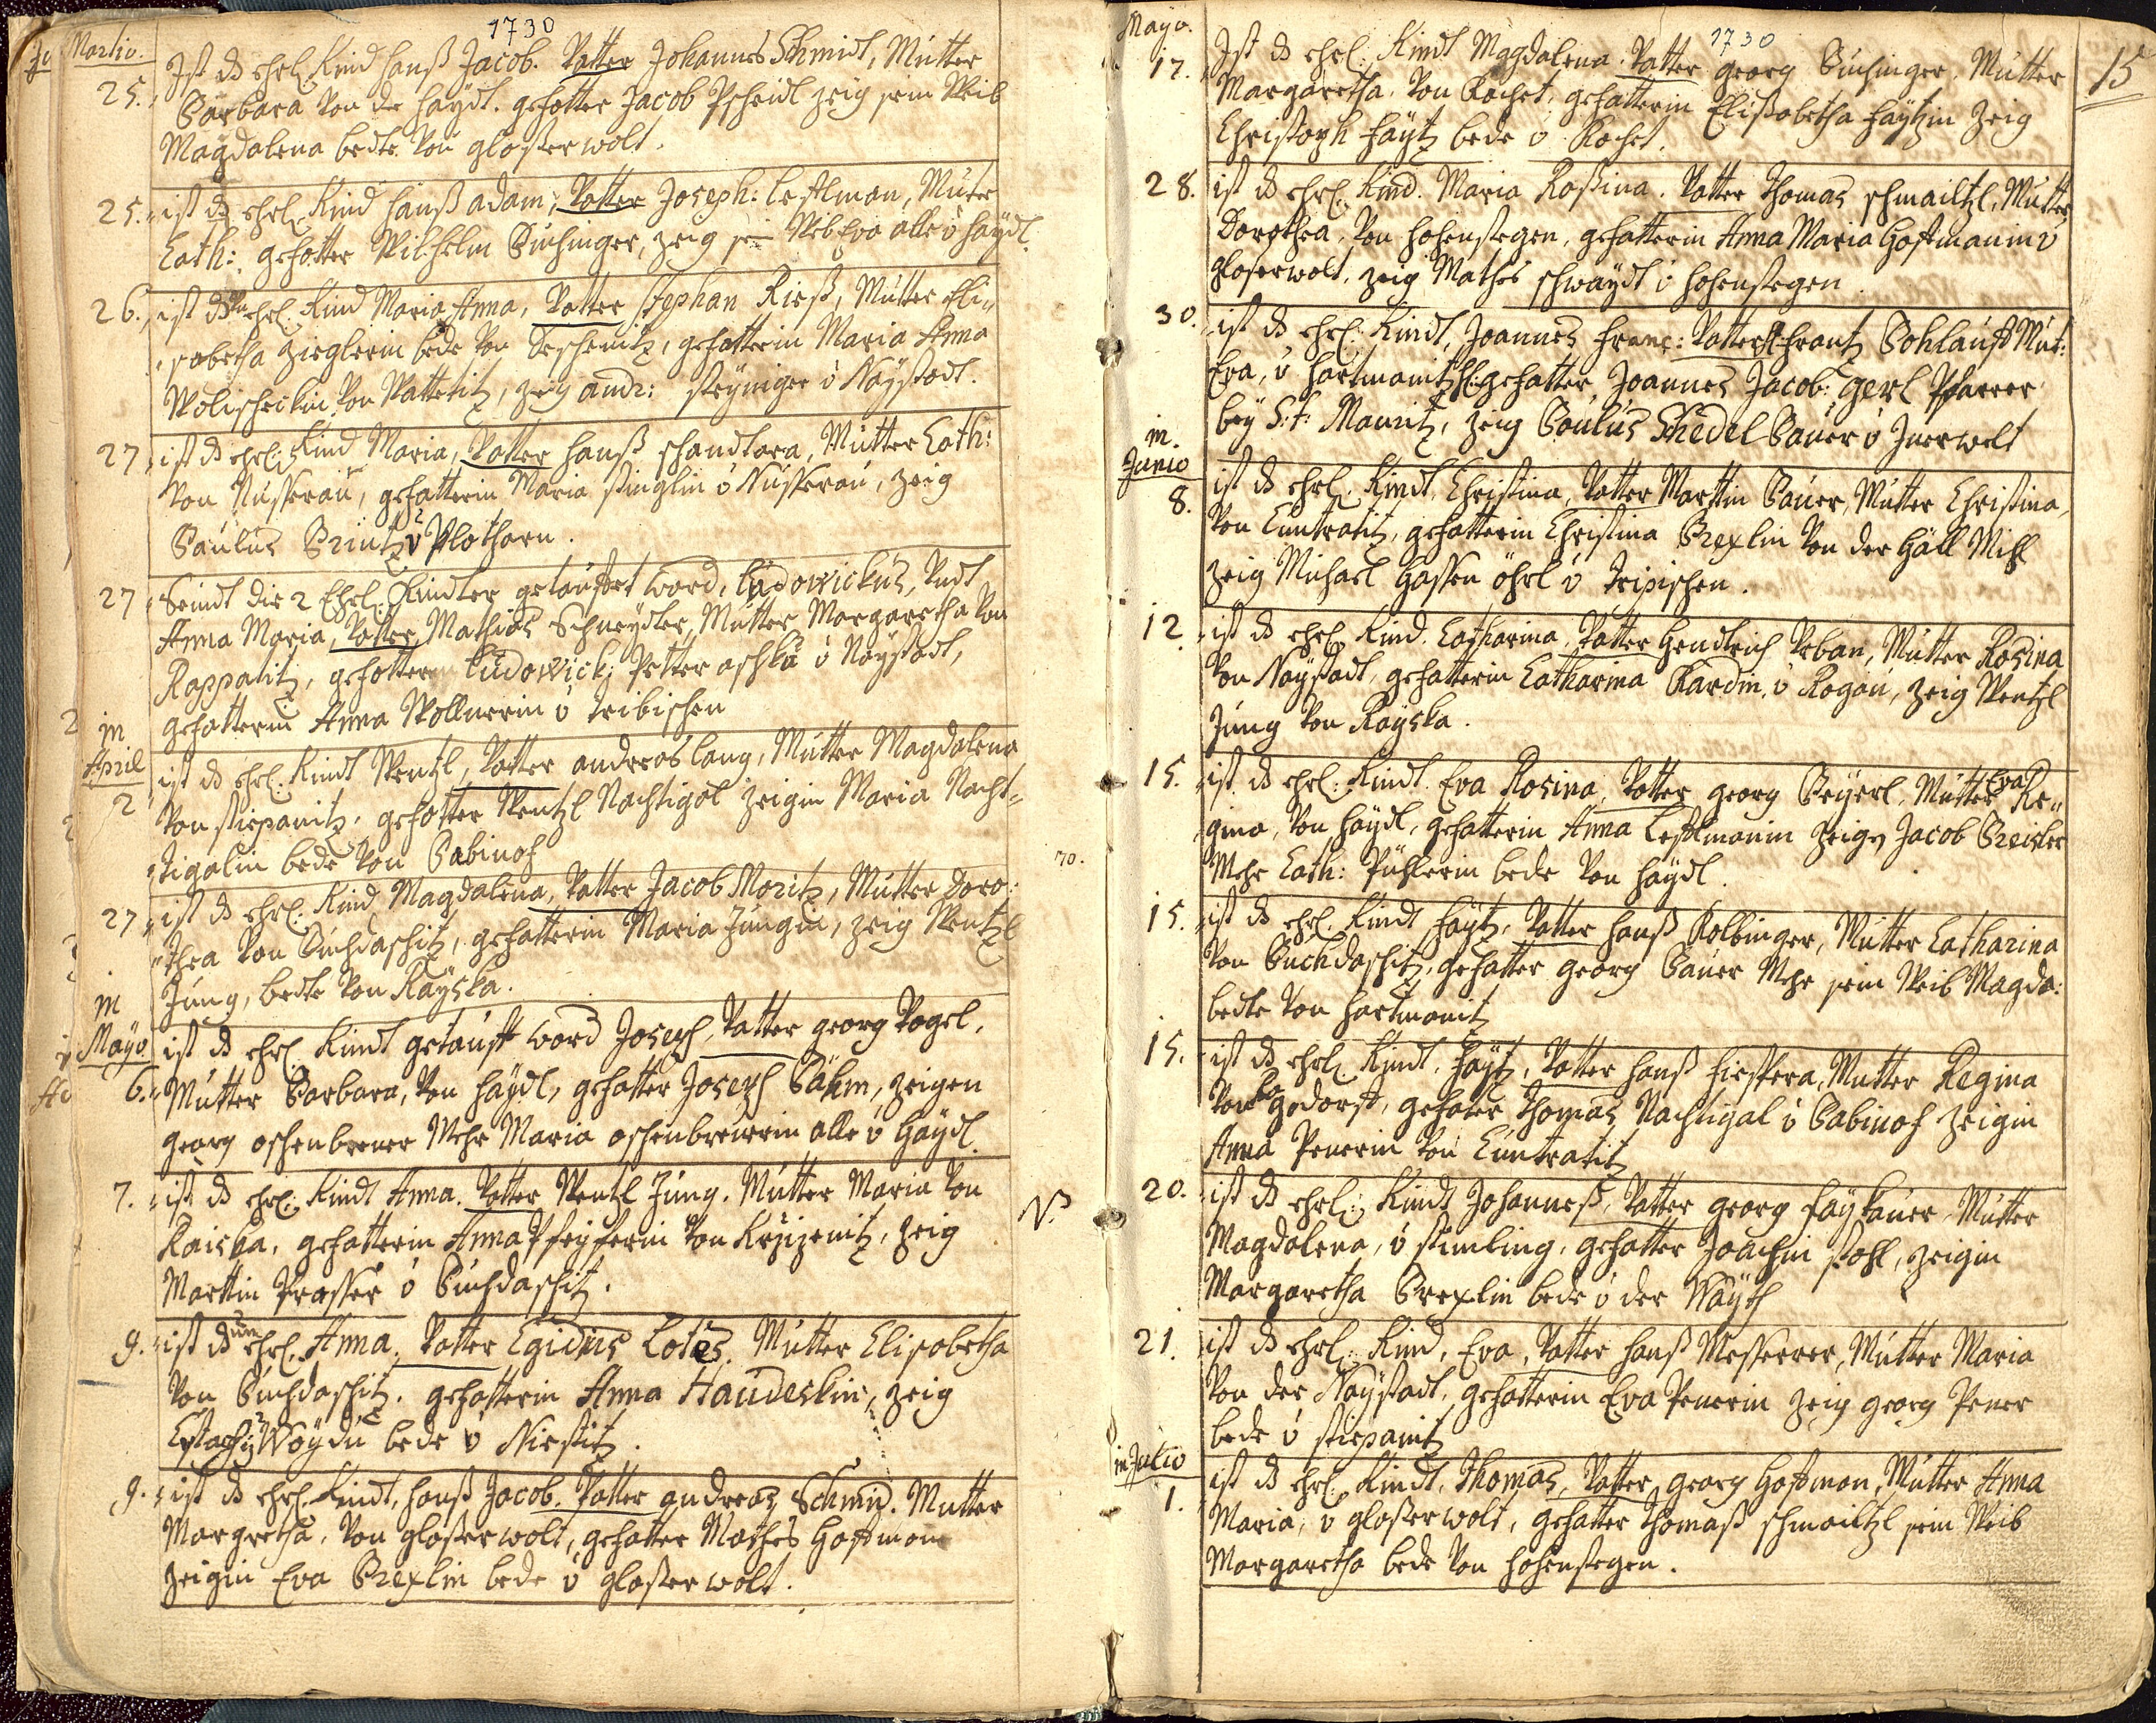 1730
In Martio.
25. Ist ds ehrl. Kind Hanß Jacob. Vatter Johannes Schmidt, Mutter
Barbara von der Haydt. gefatter Jacob Pscheidl Zeig sein Weib
Magdalena bedte von glaßerwolt.
25. ist ds ehrl. Kind Hanß adam, Vatter Joseph: Lestlman, Muter
Cath: gefatter Wilhelm Buchinger, Zeig sein Weib Eva alle v Haydl.
26. ist ds Un ehrl. Kind Maria Anna, Vatter Stephan Rieß, Mutter Eli„
sabetha Zieglerin bede von Seschenitz, gefatterin Maria Anna
Wolischeckin von Wattetitz, Zeig andr: Steyniger v Naystadt.
27. ist ds ehrl: Kind Maria, Vatter Hanß schandtara, Mutter Cath:
von Nusserau, gefatterin Maria Stinglin v Nusserau, Zeig
Paulus Printz v Plotharn.
27 Seindt die 2 Ehrl: Kindter getaufft word, Ludowickus, Vndt
Anna Maria, Vatter Mathias Schneydter Mutter Margaretha von
Rappatitz, gefatter Ludowick: Petter aschka v Naystadt,
gefatterin Anna Wollnerin v tribischen
in April
2 ist ds ehrl. Kindt Wentzl, Vatter andreas lang, Mutter Magdalena
von Stiepanitz, gefatter Wentzl Nachtigal Zeigin Maria Nacht„
„tigalin bede von Babinof
27. ist ds ehrl: Kind Magdalena, Vatter Jacob Moritz, Mutter Doro:
„thea von Buchdaschitz, gefatterin Maria Jungin, Zeig Wentzl
Jung, bedte von Rayska.
in Mayo
6. ist ds ehrl. Kindt getaufft word Joseph, Vatter georg Vogel,
Mutter Barbara, von Haydl, gefatter Joseph Böhm, Zeigen
georg oschenbrener Mehr Maria oschenbrenerin alle v Haydl.
7. ist ds ehrl: Kindt Anna. Vatter Wentzl Jung. Mutter Maria von
Raiska, gefatterin Anna Pfeyferin von Krzizenitz, Zeig
Marttin Prasser v Buchdaschitz.
9. ist ds un ehrl. Anna, Vatter Egidius Lotes, Mutter Elisabetha
von Buchdaschitz. gefatterin Anna Haudeskin, Zeig
Estachy Woydu bede v Niestitz.
9. ist ds ehrl. Kindt, Hanß Jacob. Vatter andreas Schmid. Mutter
Margretha, von glaßerwolt, gefatter Mathes Hoffman
Zeigin Eva Brexlin bede v glaßerwolt.
70.
NB
Mayo.
1730
15
17. Ist ds ehrl: Kindt Magdalena. Vatter georg Buchinger, Mutter
Margaretha. von Rachet, gefatterin Elisabetha Faytzin Zeig
Christoph Faytz bede v Rachet.
28. ist ds ehrl. Kind. Maria Rosina. Vatter Thomas schmailtzl, Mutter
Dorothea, von Hohenstegen, gefatterin Anna Maria Hoffmanin v
glaserwolt, Zeig Mathes schwaydl v Hohenstegen.
30. ist ds ehrl: Kindt, Joannes Franc: Vatter H Frantz Bohlauft Mut:
Eva, v Hartmanitz H: gefatter Joannes Jacob: Gerl Pfarrer
bey S:t: Mauritz, Zeig Paulus Schedel Bauer v Jnerwelt
in Junio
8. ist ds ehrl. Kindt, Christina, Vatter Marttin Bauer, Mutter Christina,
von Cuntratitz, gefatterin Christina Brexlin von der Häll Mihl
Zeig Michael Gassen öhrl v Tripischen.
12 ist ds ehrl. Kind. Catharina, Vatter Hendtrich Vrban, Mutter Rosina
von Naystadt, gefatterin Catharina Bardin, v Rogau, Zeig Wentzl
Jung von Rayska.
15. ist ds ehrl: Kindt. Eva Rosina, Vatter georg Beyerl, Mutter Eva Re„
gina, von Haydl, gefatterin Anna Lestlmanin Zeig Jacob Breisler
Mehr Cath: Pihlerin bede von Haydl.
15. ist ds ehrl. Kindt Faytz, Vatter Hanß Kolbinger, Mutter Catharina
von Buchdaschitz, gefatter georg Bauer Mehr sein Weib Magda:
bedte von Hartmanitz
15. ist ds ehrl. Kindt, Faytz, Vatter Hanß Fiessera, Mutter Regina
von godorst, gefater Thomas Nachtigal v Babinof Zeigin
Anna Penerin von Cuntratitz
20. ist ds ehrl: Kindt Johanneß, Vatter georg Faykauer, Mutter
Magdalena, v Stimling, gefatter Joachim Stohl, Zeigin
Margaretha Brexlin bede v der Wayth
21. ist ds ehrl: Kind, Eva, Vatter Hanß Messerer, Mutter Maria
von der Naystadt, gefatterin Eva Penerin Zeig georg Pener
bede v Stiepanitz
in Julio
1. ist ds ehrl. Kindt, Thomas, Vatter georg Hoffman, Mutter Anna
Maria, v glaßerwolt, gefatter Thomaß schmailtzl sein Weib
Margaretha bede von Hohenstegen.